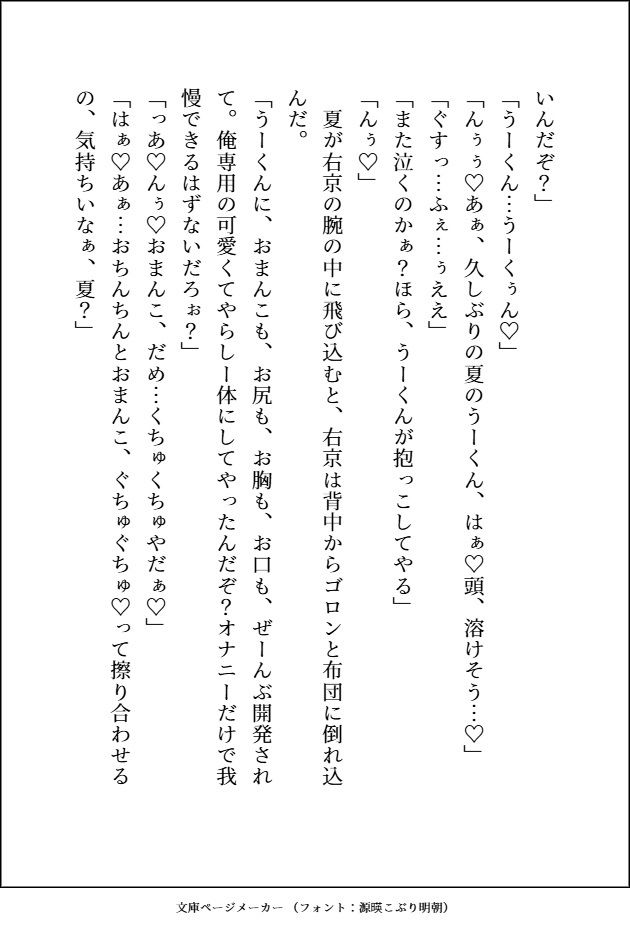 いんだぞ？」
「うーくん…うーくぅん♡」
「んぅぅ♡あぁ、久しぶりの夏のうーくん、はぁ♡頭、溶けそう…♡」
「ぐすっ…ふぇ…ぅええ」
「また泣くのかぁ？ほら、うーくんが抱っこしてやる」
「んぅ♡」
　夏が右京の腕の中に飛び込むと、右京は背中からゴロンと布団に倒れ込
んだ。
「うーくんに、おまんこも、お尻も、お胸も、お口も、ぜーんぶ開発され
て。俺専用の可愛くてやらしー体にしてやったんだぞ？オナニーだけで我
慢できるはずないだろぉ？」
「っあ♡んぅ♡おまんこ、だめ…くちゅくちゅやだぁ♡」
「はぁ♡あぁ…おちんちんとおまんこ、ぐちゅぐちゅ♡って擦り合わせる
の、気持ちいなぁ、夏？」
文庫ページメーカー （フォント：源暎こぶり明朝）